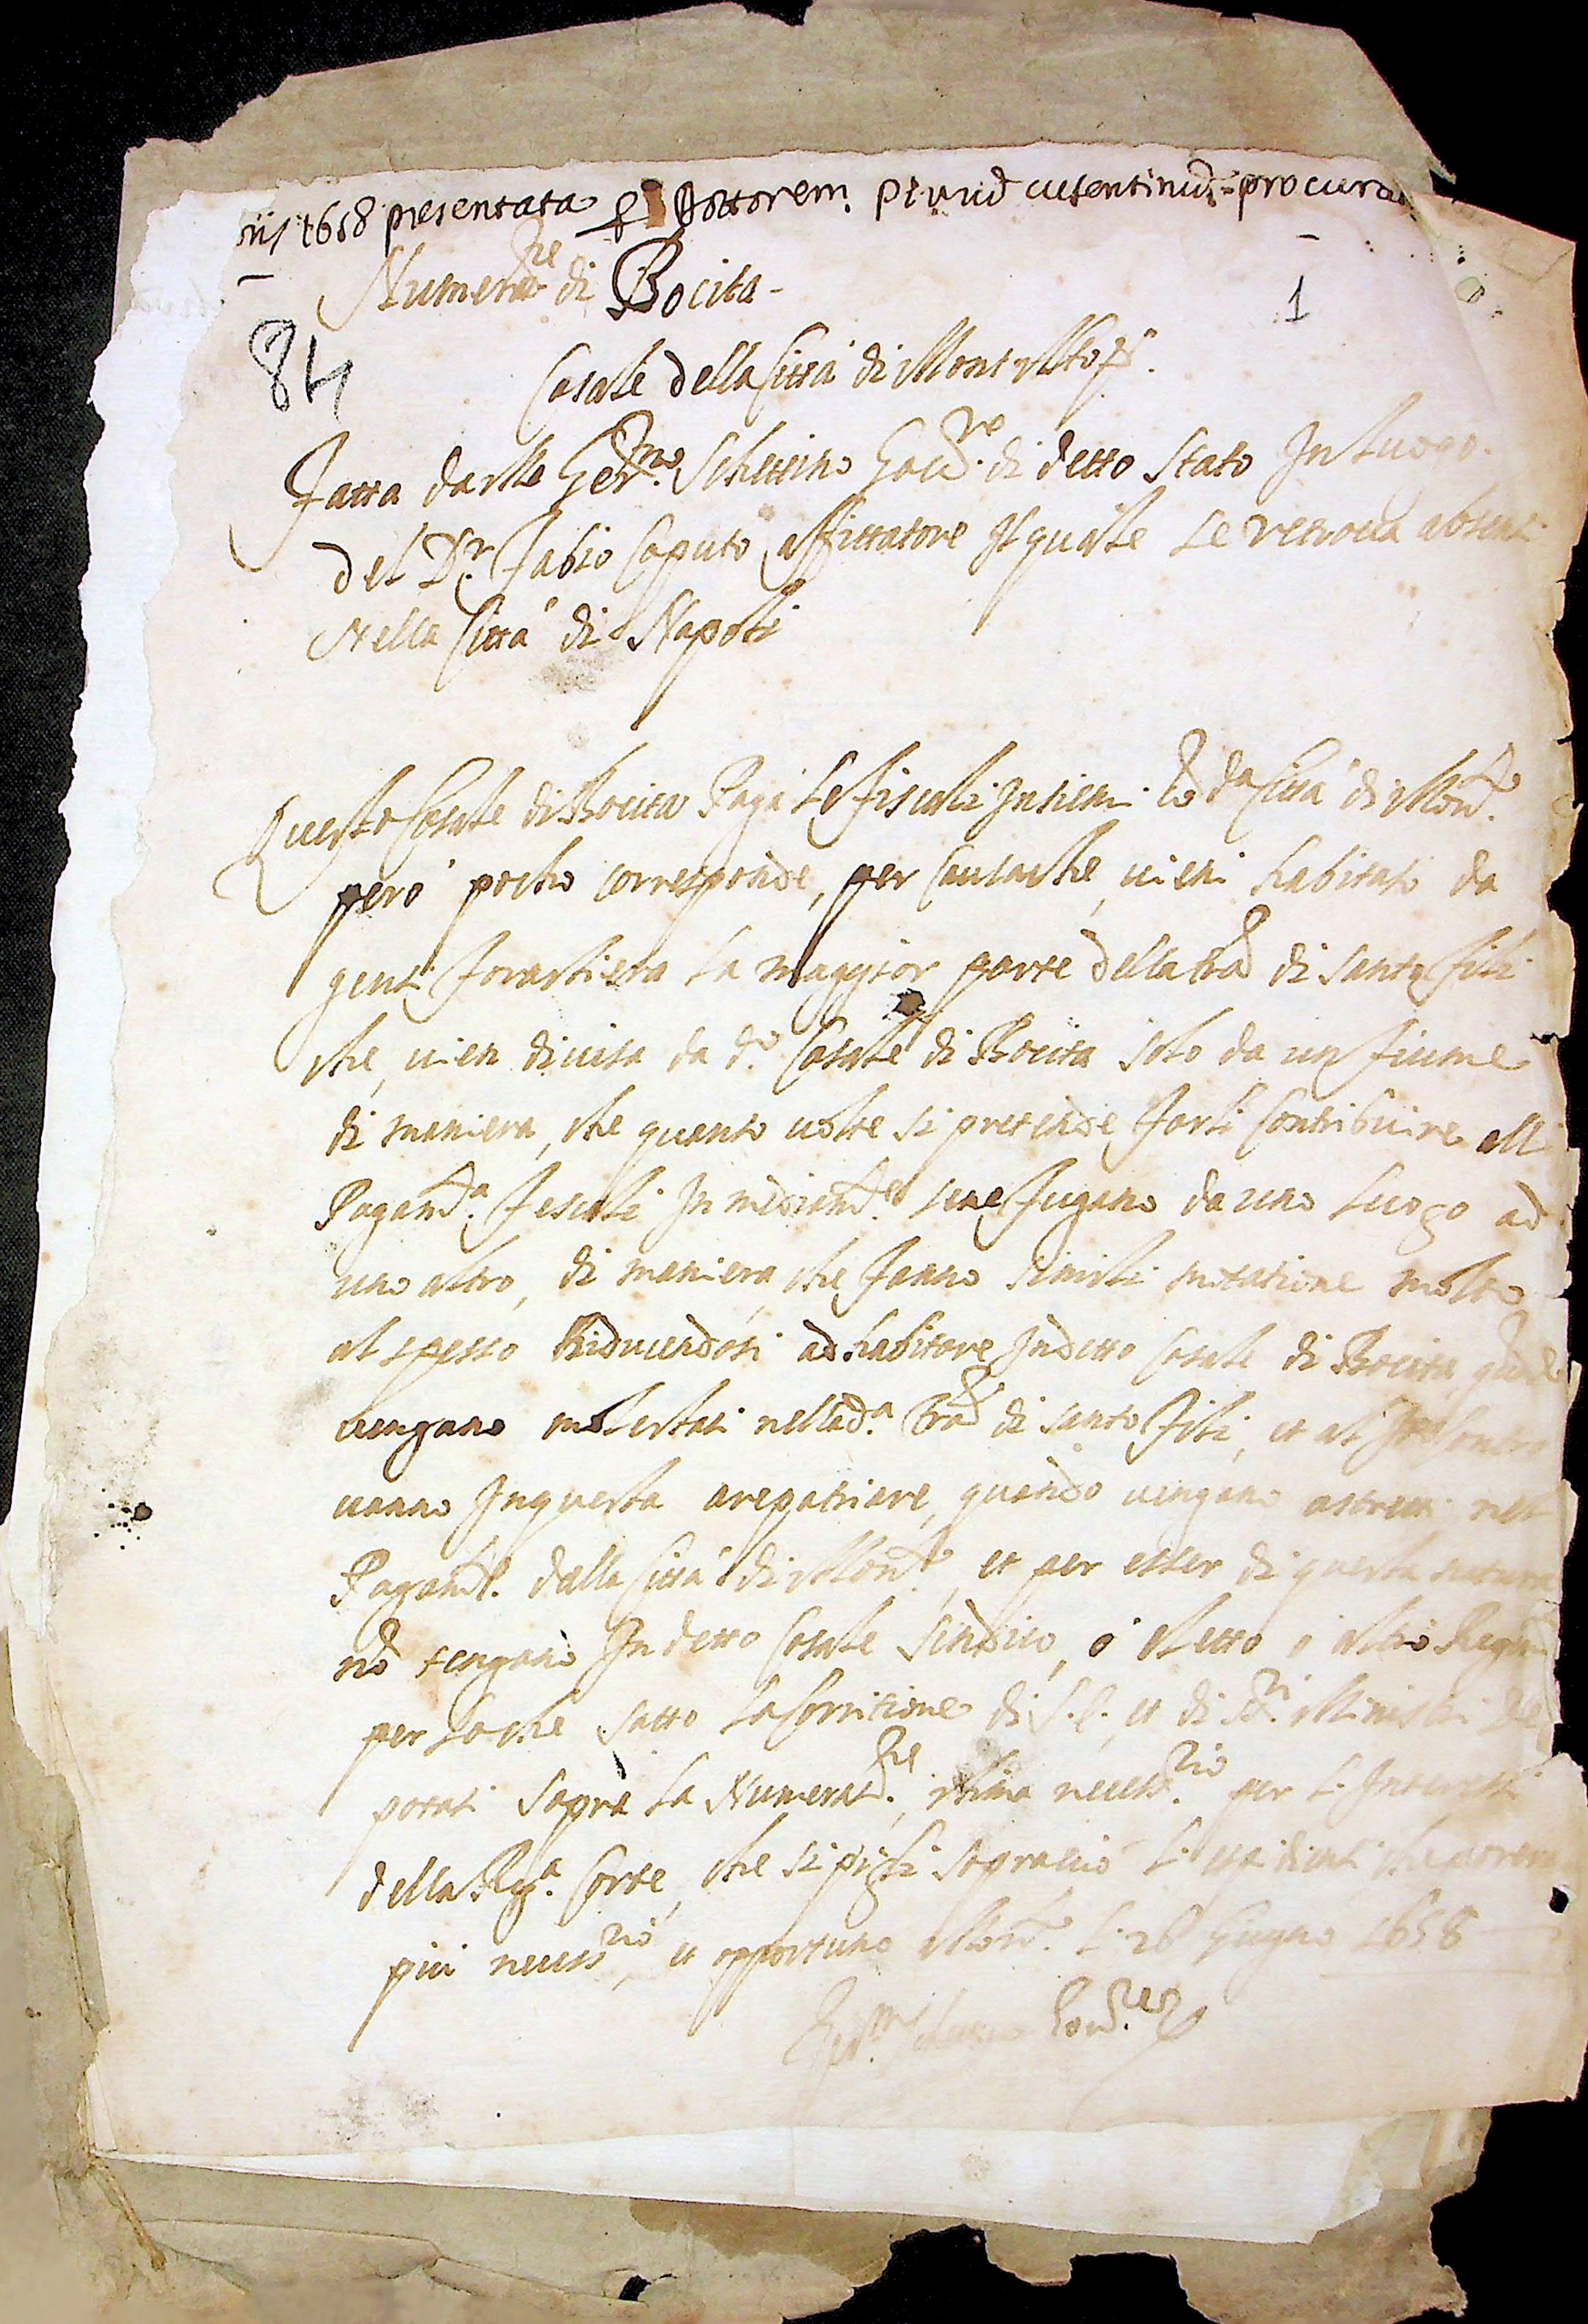 1658 presentata p Dottorem cusentinu procura
Numerat.ne di Bocita -
1
84
Casale della Città di Mont'Alto
Fatta dalle Ger.mo Schettino Gou.re di detto Stato In luogo
del D.r Fabio Caputo affittatore Il quale se retroua absent
Nella Città di Napoli
Questo Casale di Bocita Paga le fiscali Insiem. co d.a Città di Mont.
però pocho corresponde, per causa che, uien habitato da
genti forastiera la maggior parte della tra di santo fili
che, uien diuisa da d.o Casale di Bocita solo da un fiume
di maniera, che quante uolte si pretende farli Contribuire alli
Pagam.ti fescali In mediam.te se ne fugano da uno luogo ad
uno altro, di maniera, che fanno simili mutatione molto
al spesso Riducendosi ad habitare In detto Casale di Bocita
uengano molestati nella d.a tra di santo fili, et al Incontro
uanno In questa arepatriare, quando uengano astretti nel
Pagam.to dalla Città di Mont.o, et per esser di questa natura
no tengano In detto Casale sindico, o eletto o altro
per lo che sotto la corretione di S.E. et di SS.ri Ministri De
potati sopra la Numerat.ne, stima necess.rio per l'Interessi
della Reg.a Corte, che si pigli sopra ciò
più necess.rio, et opportuno Mont.o li 28 Giugno 1658
Ger.mo Gou.re